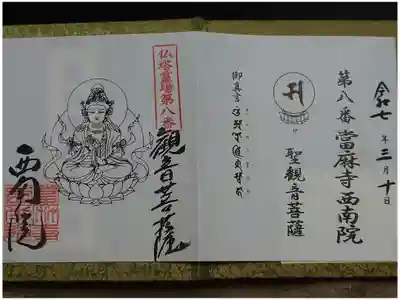 令和七年三月十日
第八番 當麻寺西南院
聖観音菩薩
御真言
仏塔霊場第八番
觀音菩薩
西南院